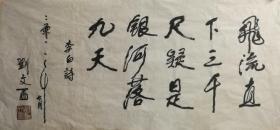 飛流直
下三千
尺疑是
銀河落
九天
李白詩
劉文西